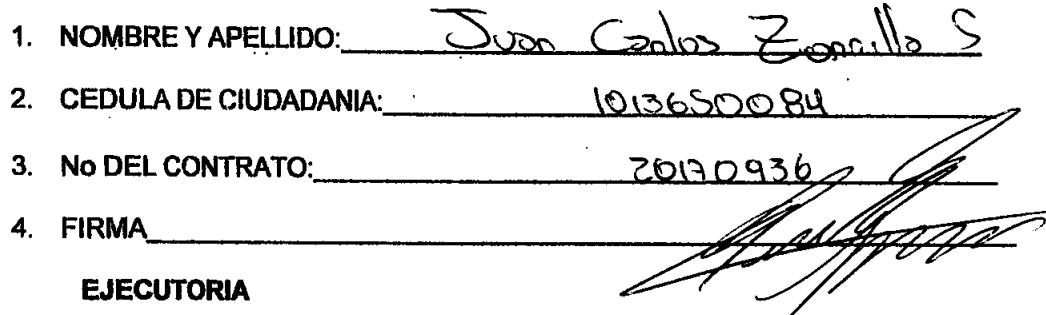 1. NOMBRE Y APELLIDO: Juan Carlos Zorrilla S
2. CEDULA DE CIUDADANIA: 1013650084
3. No DEL CONTRATO: 20170936
4. FIRMA
EJECUTORIA